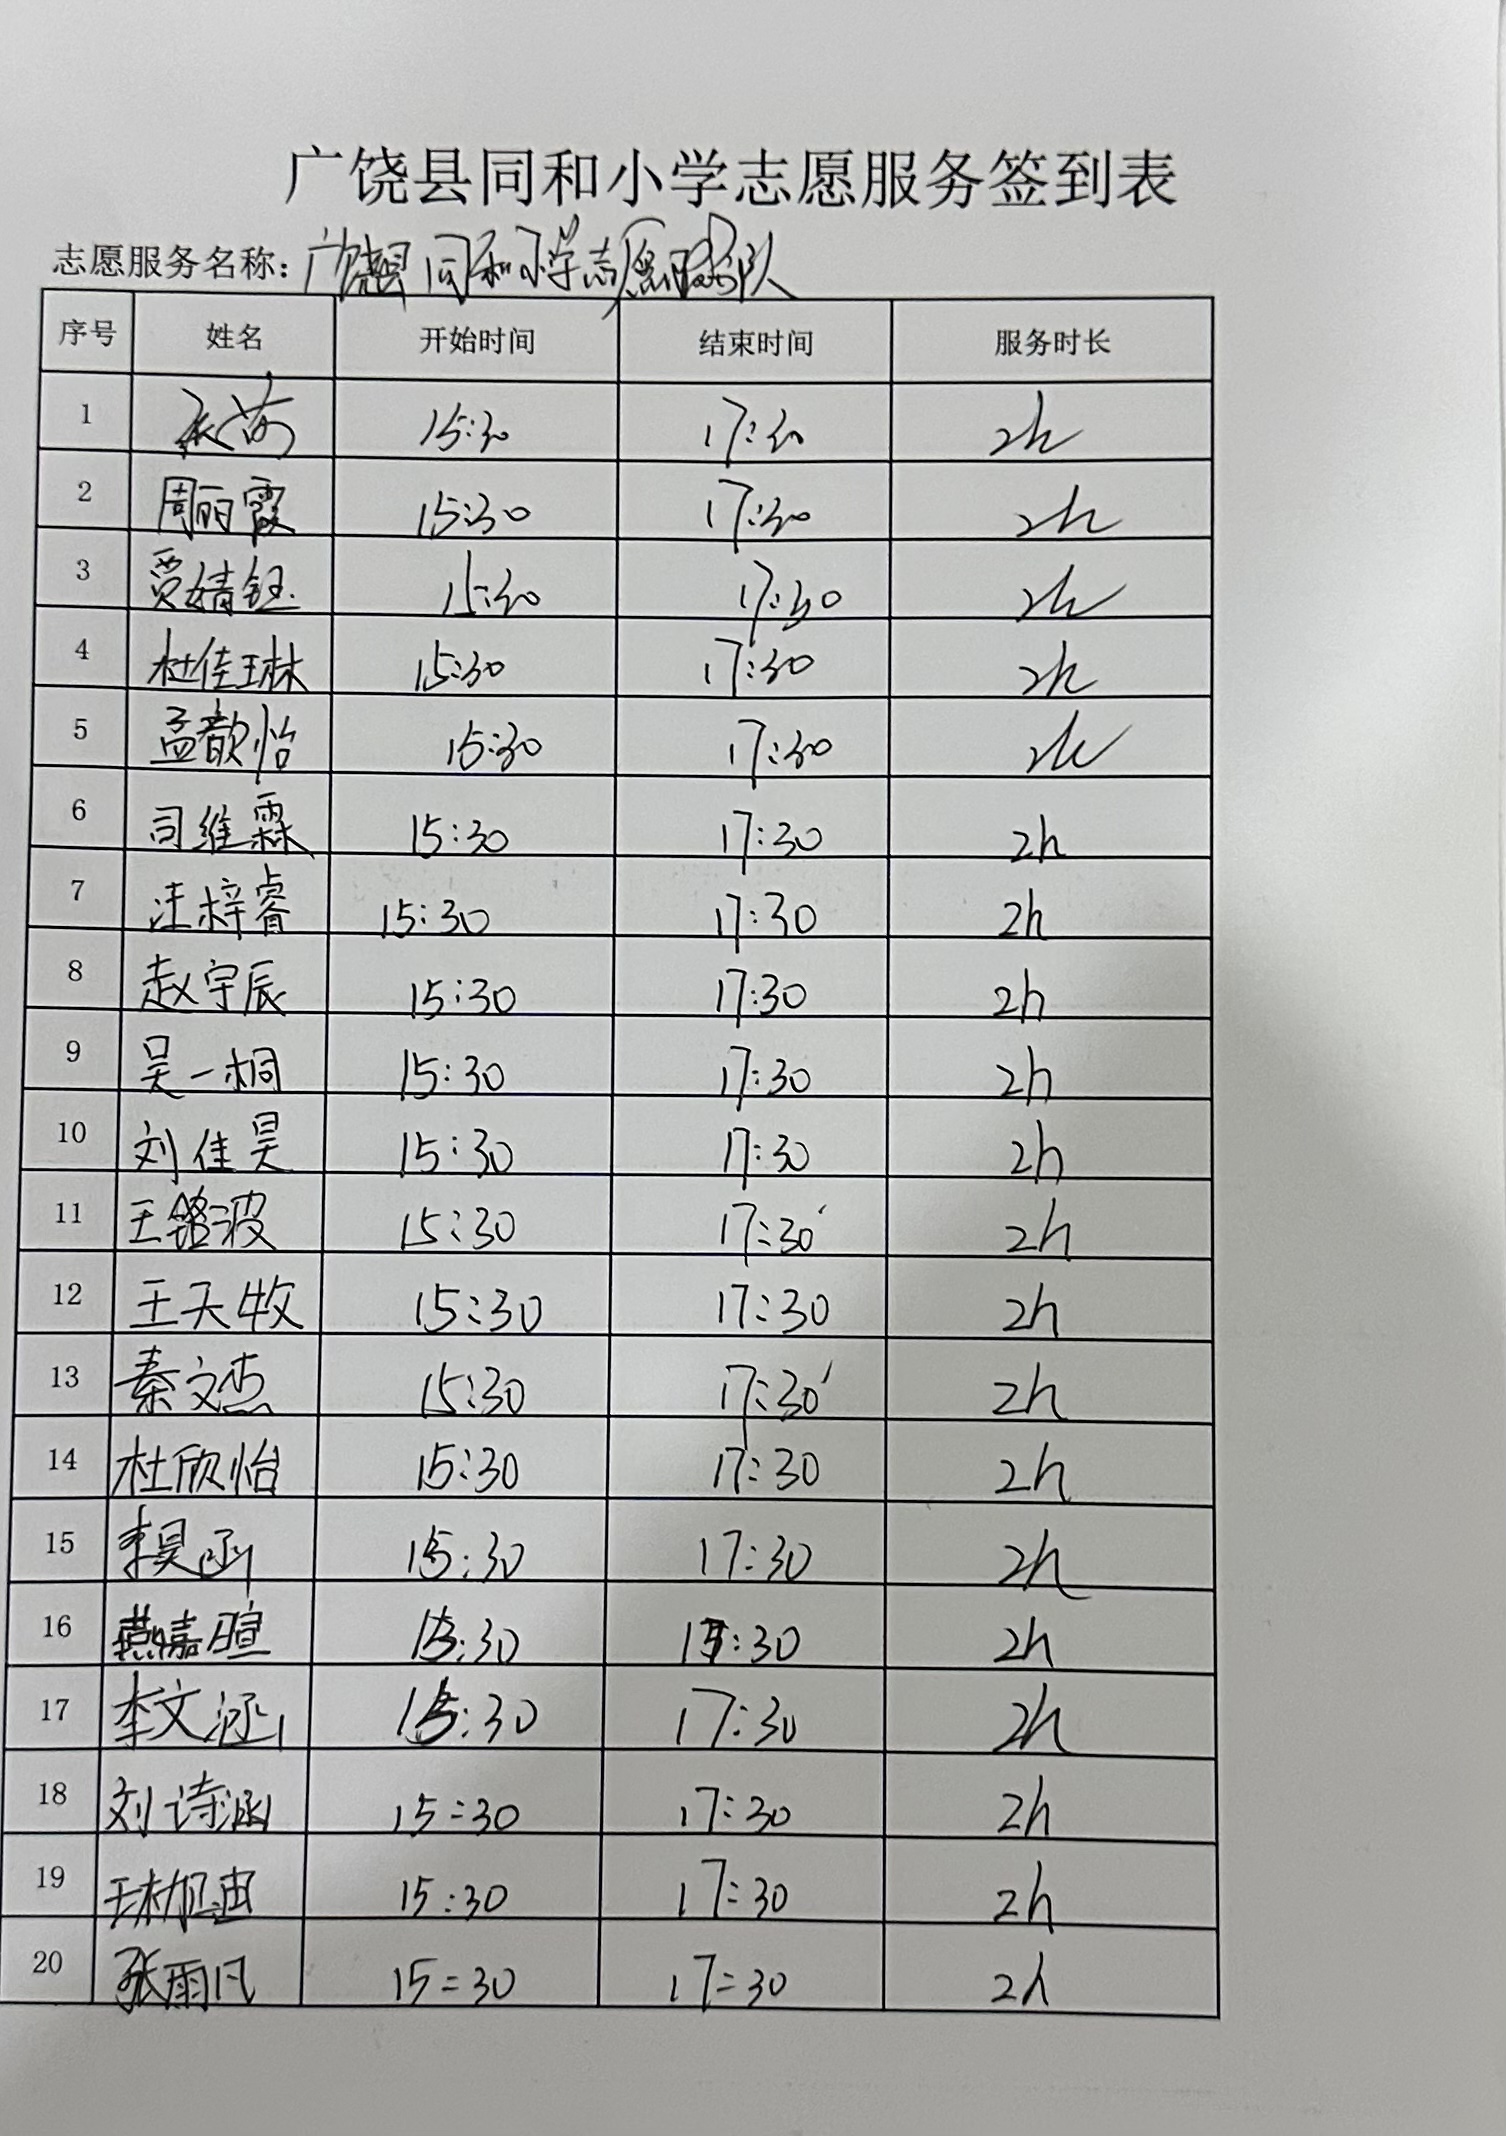 广饶县同和小学志愿服务签到表
志愿服务名称：广饶县同和小学志愿服务队
序号 姓名 开始时间 结束时间 服务时长
1 15:30 17:30 2h
2 周丽霞 15:30 17:30 2h
3 贾婧钰 15:30 17:30 2h
4 杜佳琳 15:30 17:30 2h
5 孟歆怡 15:30 17:30 2h
6 司维霖 15:30 17:30 2h
7 汪梓睿 15:30 17:30 2h
8 赵宇辰 15:30 17:30 2h
9 吴一桐 15:30 17:30 2h
10 刘佳昊 15:30 17:30 2h
11 王铭波 15:30 17:30 2h
12 王天牧 15:30 17:30 2h
13 秦文杰 15:30 17:30 2h
14 杜欣怡 15:30 17:30 2h
15 李昊函 15:30 17:30 2h
16 燕嘉暄 15:30 17:30 2h
17 李文涵 15:30 17:30 2h
18 刘诗涵 15:30 17:30 2h
19 15:30 17:30 2h
20 张雨凡 15:30 17:30 2h